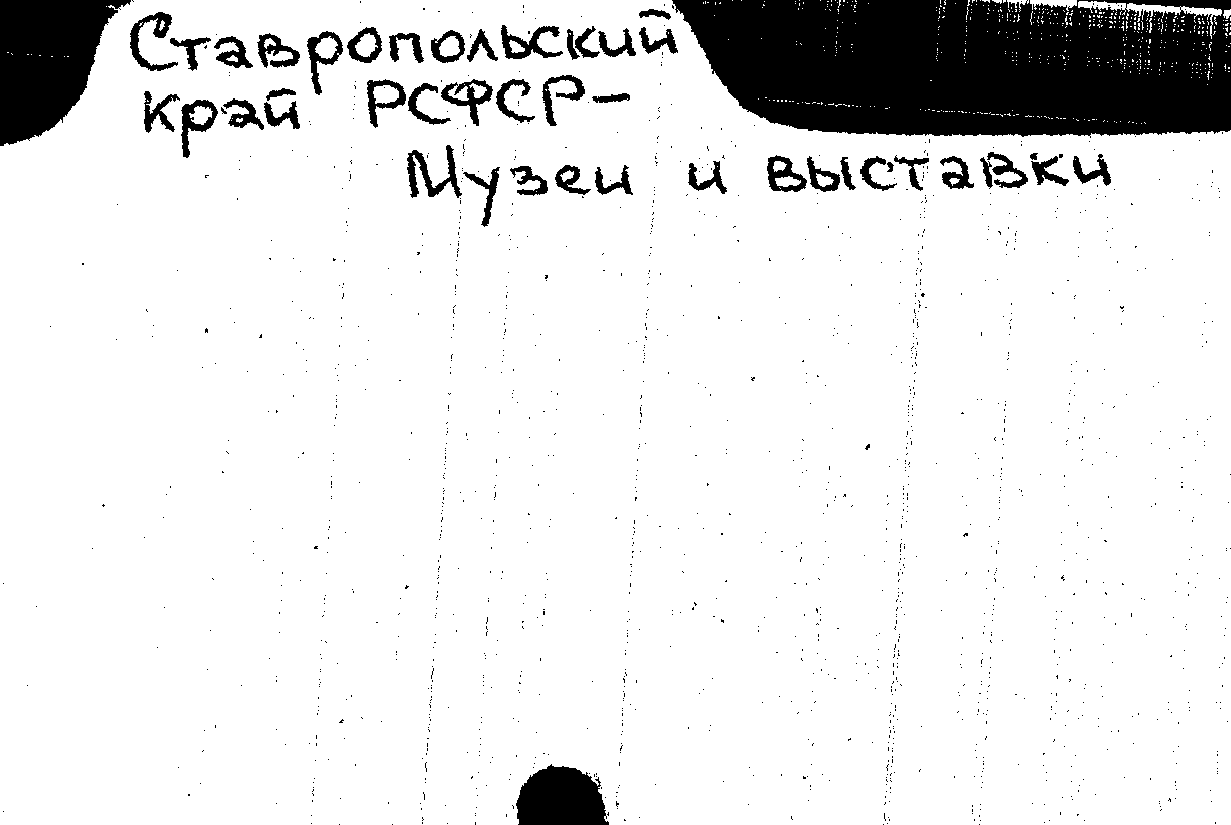 Ставропольский
край РСФСР-
Музеи и выставки